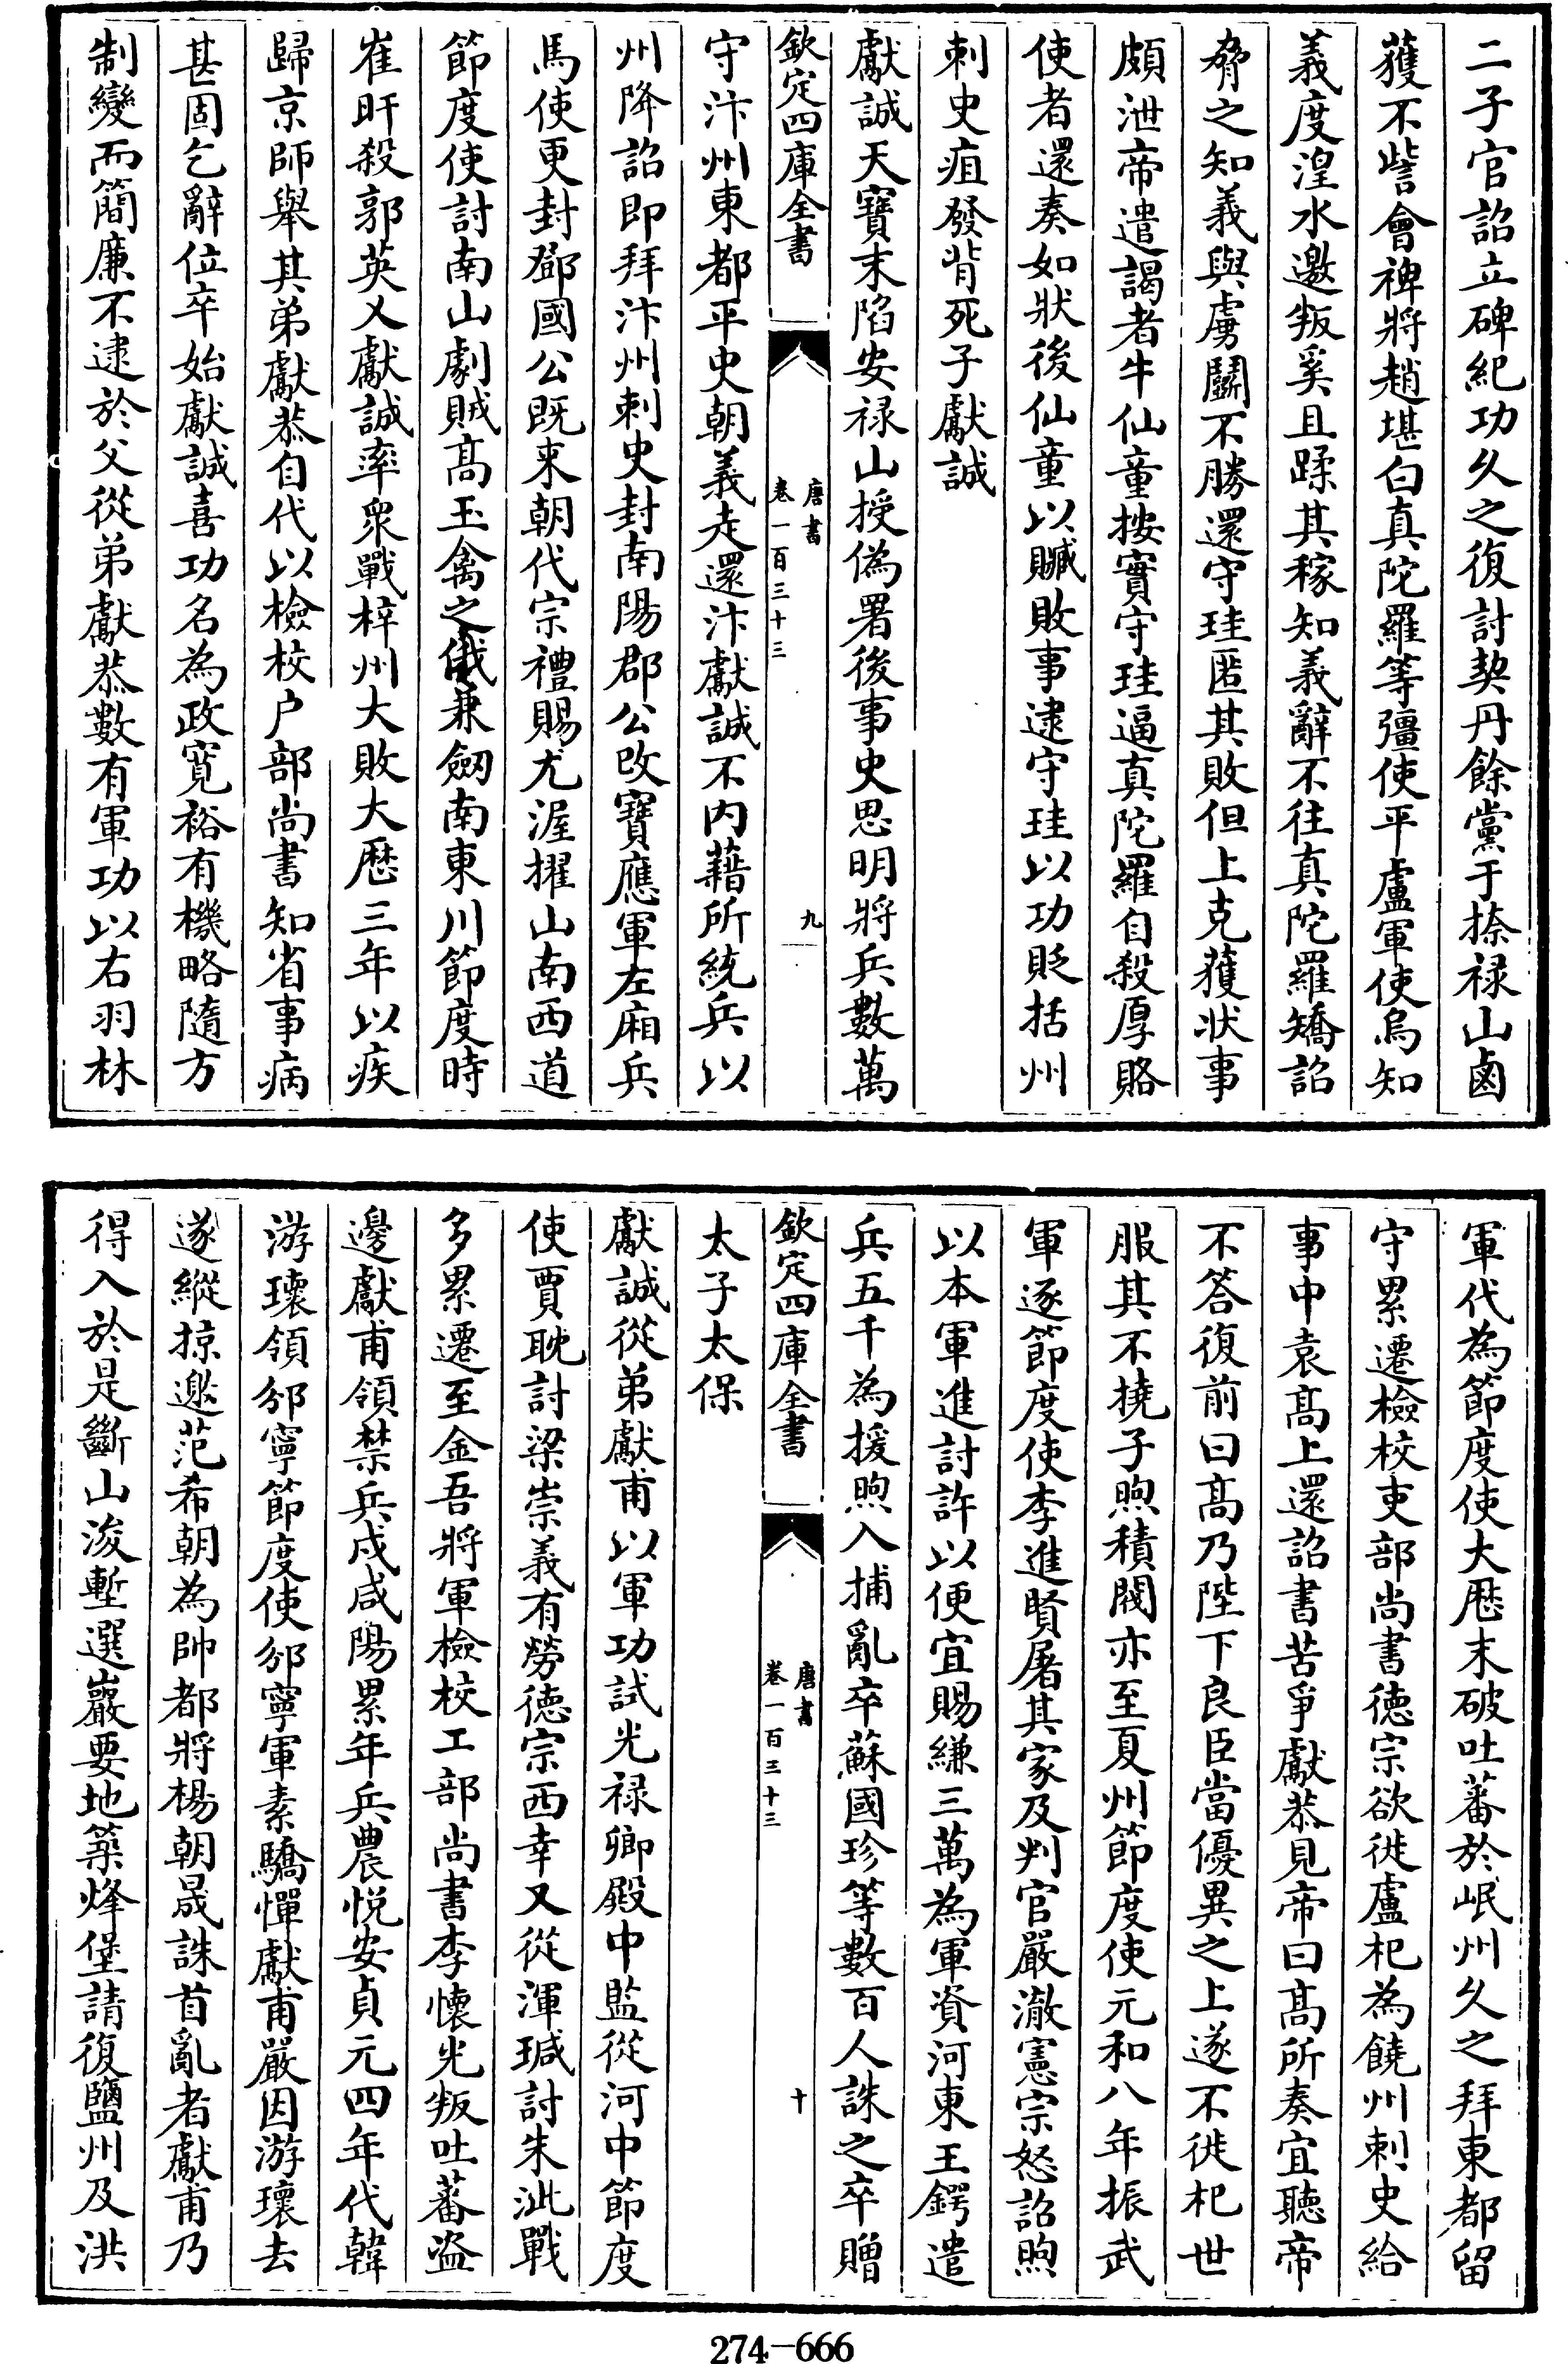 二子官詔立碑紀功久之復討契丹餘黨于捺禄山鹵
獲不訾會裨將趙堪白真陀羅等彊使平盧軍使烏知
義度湟水邀叛奚且蹂其稼知義辭不往真陀羅矯詔
脅之知義與虜鬬不勝還守珪匿其敗但上克獲狀事
頗泄帝遣謁者牛仙童按實守珪逼真陀羅自殺厚賂
使者還奏如狀後仙童以贓敗事逮守珪以功貶括州
刺史疽發背死子獻誠
獻誠天寶末陷安禄山授偽署後事史思明將兵數萬
欽定四庫全書
唐書
卷一百三十三
九
守汴州東都平史朝義走還汴獻誠不内藉所統兵以
州降詔即拜汴州刺史封南陽郡公改寶應軍左廂兵
馬使更封鄧國公既來朝代宗禮賜尤渥擢山南西道
節度使討南山劇賊高玉禽之俄兼劒南東川節度時
崔旰殺郭英乂獻誠率衆戰梓州大敗大厯三年以疾
歸京師舉其弟獻恭自代以檢校户部尚書知省事病
甚固乞辭位卒始獻誠喜功名為政寛裕有機略隨方
制變而簡廉不逮於父從弟獻恭數有軍功以右羽林
軍代為節度使大厯末破吐蕃於岷州久之拜東都留
守累遷檢校吏部尚書徳宗欲徙盧杞為饒州刺史給
事中袁高上還詔書苦爭獻恭見帝曰高所奏宜聽帝
不答復前曰高乃陛下良臣當優異之上遂不徙杞世
服其不撓子煦積閥亦至夏州節度使元和八年振武
軍逐節度使李進賢屠其家及判官嚴澈憲宗怒詔煦
以本軍進討許以便宜賜縑三萬為軍資河東王鍔遣
兵五千為援煦入捕亂卒蘇國珍等數百人誅之卒贈
欽定四庫全書
唐書
卷一百三十三
十
太子太保
獻誠從弟獻甫以軍功試光禄卿殿中監從河中節度
使賈耽討梁崇義有勞徳宗西幸又從渾瑊討朱泚戰
多累遷至金吾將軍檢校工部尚書李懷光叛吐蕃盗
邊獻甫領禁兵戍咸陽累年兵農悦安貞元四年代韓
游瓌領邠寧節度使邠寧軍素驕憚獻甫嚴因游瓌去
遂縱掠邀范希朝為帥都將楊朝晟誅首亂者獻甫乃
得入於是斷山浚塹選嚴要地築烽堡請復鹽州及洪
274-666